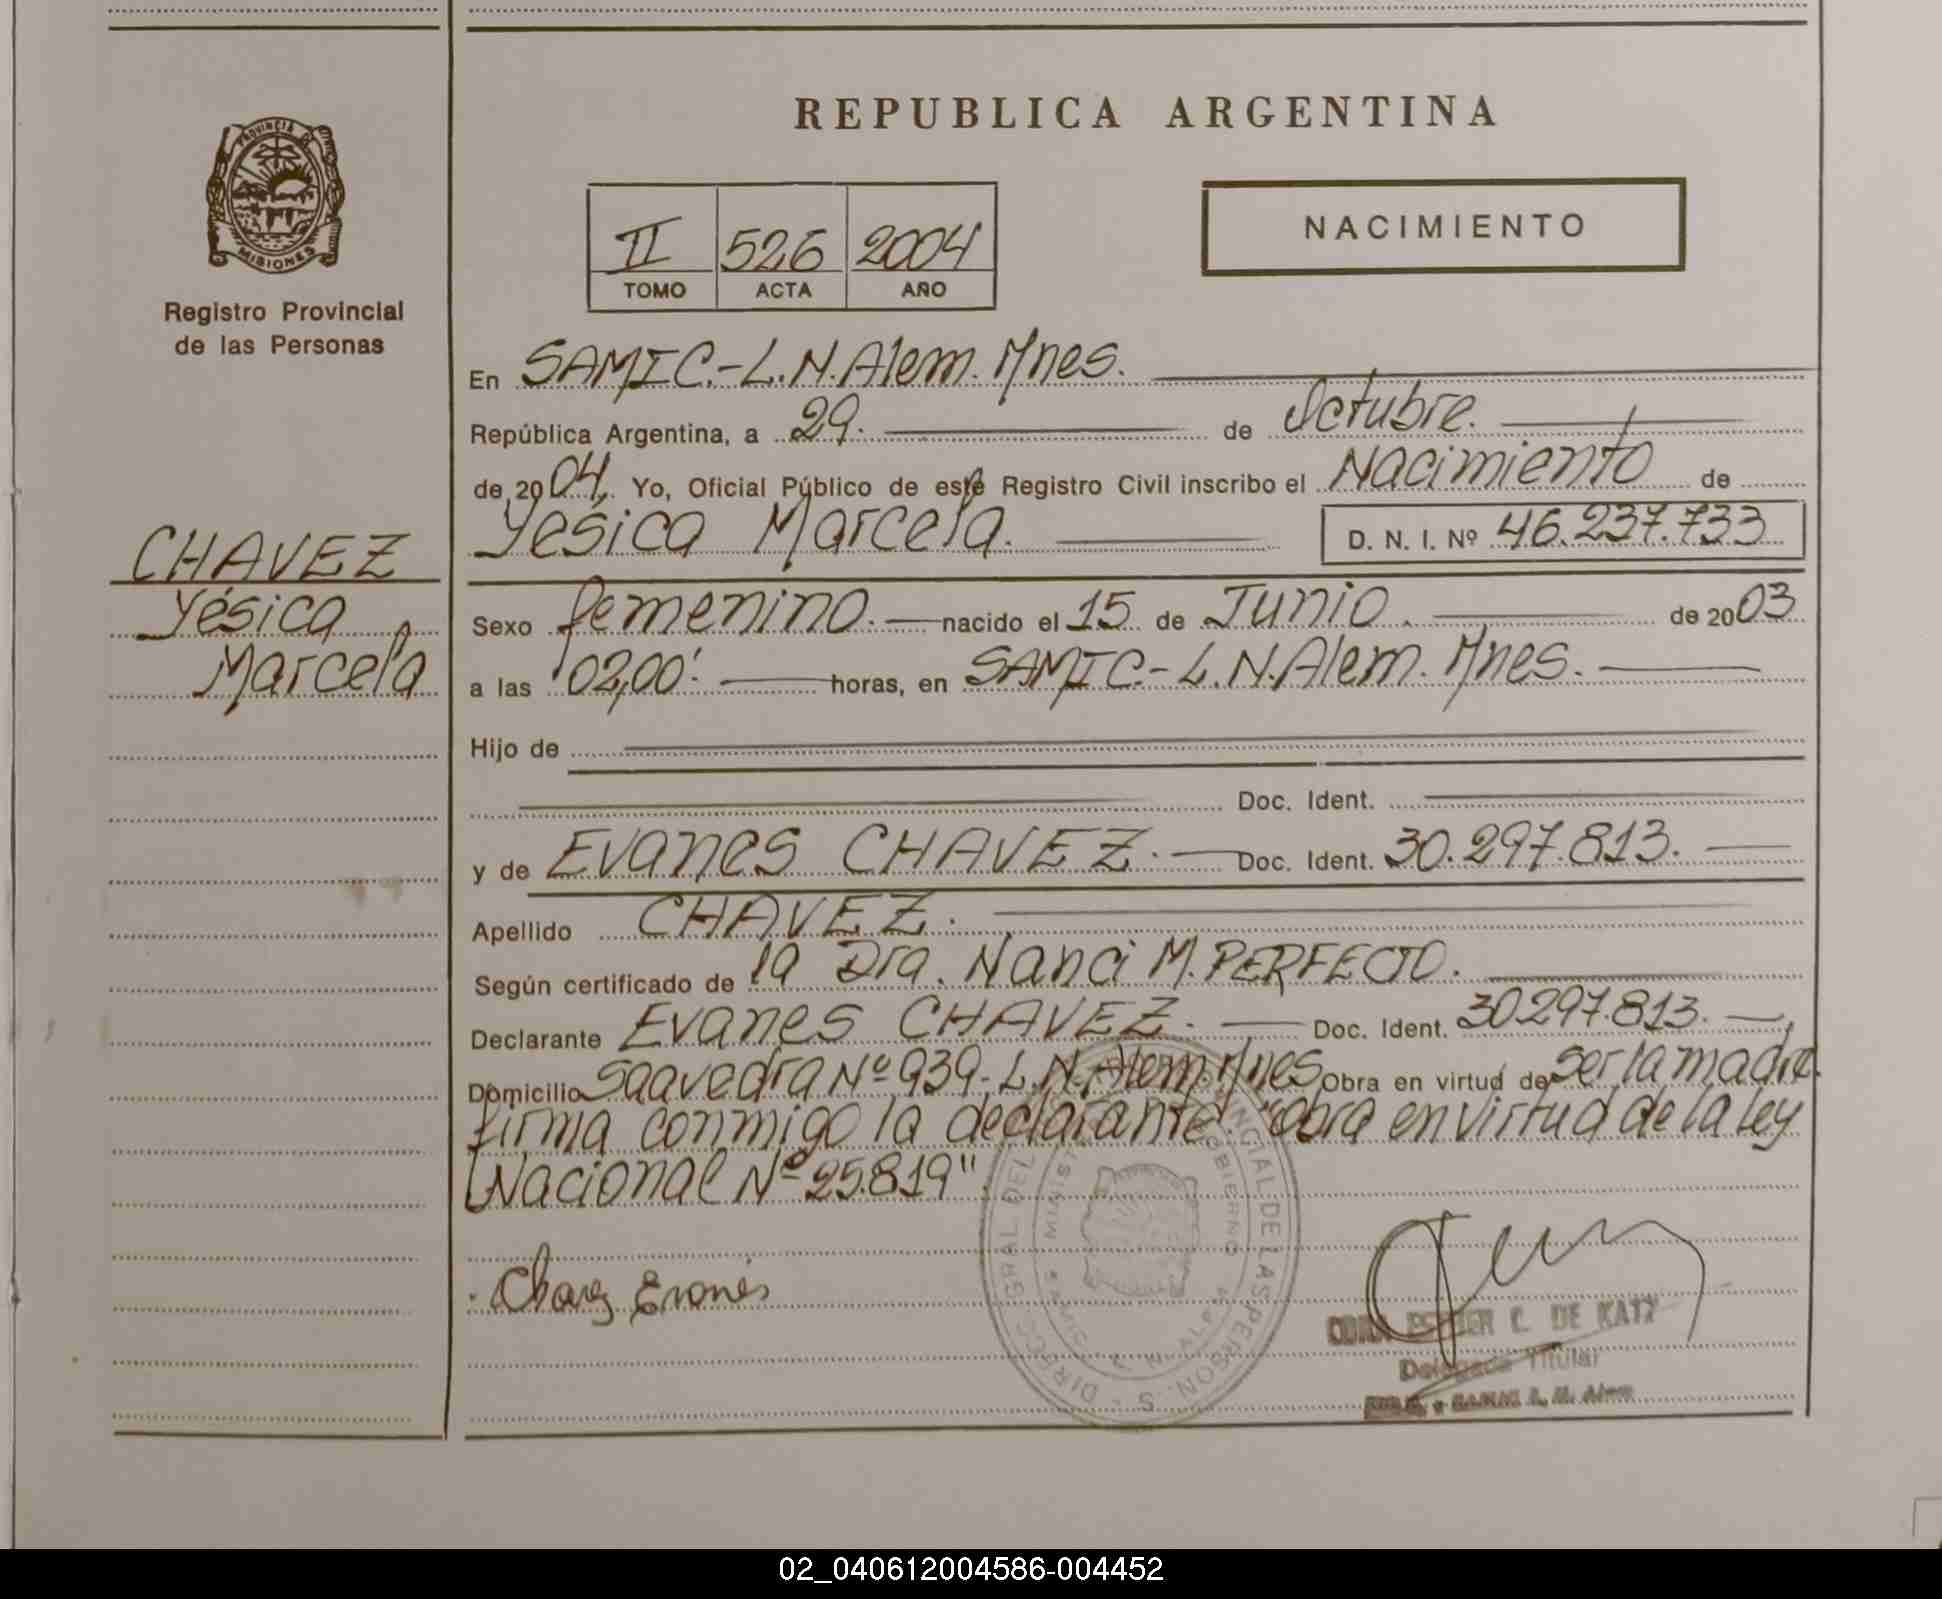 REPUBLICA ARGENTINA
PROVINCIA DE
MISIONES
Registro Provincial
de las Personas
II 526 2004
TOMO ACTA AÑO
NACIMIENTO
En SAMIC.-L.N.Alem. Mnes.
República Argentina, a 29. de Octubre.
de 2004, Yo, Oficial Público de este Registro Civil inscribo el Nacimiento de
Yésica Marcela. D. N. I. Nº 46.237.733
CHAVEZ
Yésica
Marcela
Sexo femenino. nacido el 15 de Junio. de 2003
a las 02,00' horas, en SAMIC.-L.N.Alem. Mnes.
Hijo de
Doc. Ident.
y de Evanes CHAVEZ. Doc. Ident. 30.297.813.
Apellido CHAVEZ.
Según certificado de la Dra. Nanci M. PERFECTO.
Declarante Evanes CHAVEZ. Doc. Ident. 30297.813.
Domicilio Saavedra Nº 939-L.N.Alem.Mnes Obra en virtud de ser la madre.
firma conmigo la declarante "obra en virtud de la ley
Nacional Nº 25.819".
Chavez Evanes
ESTHER C. DE KATZ
Delegada Titular
L. N. Alem
02_040612004586-004452